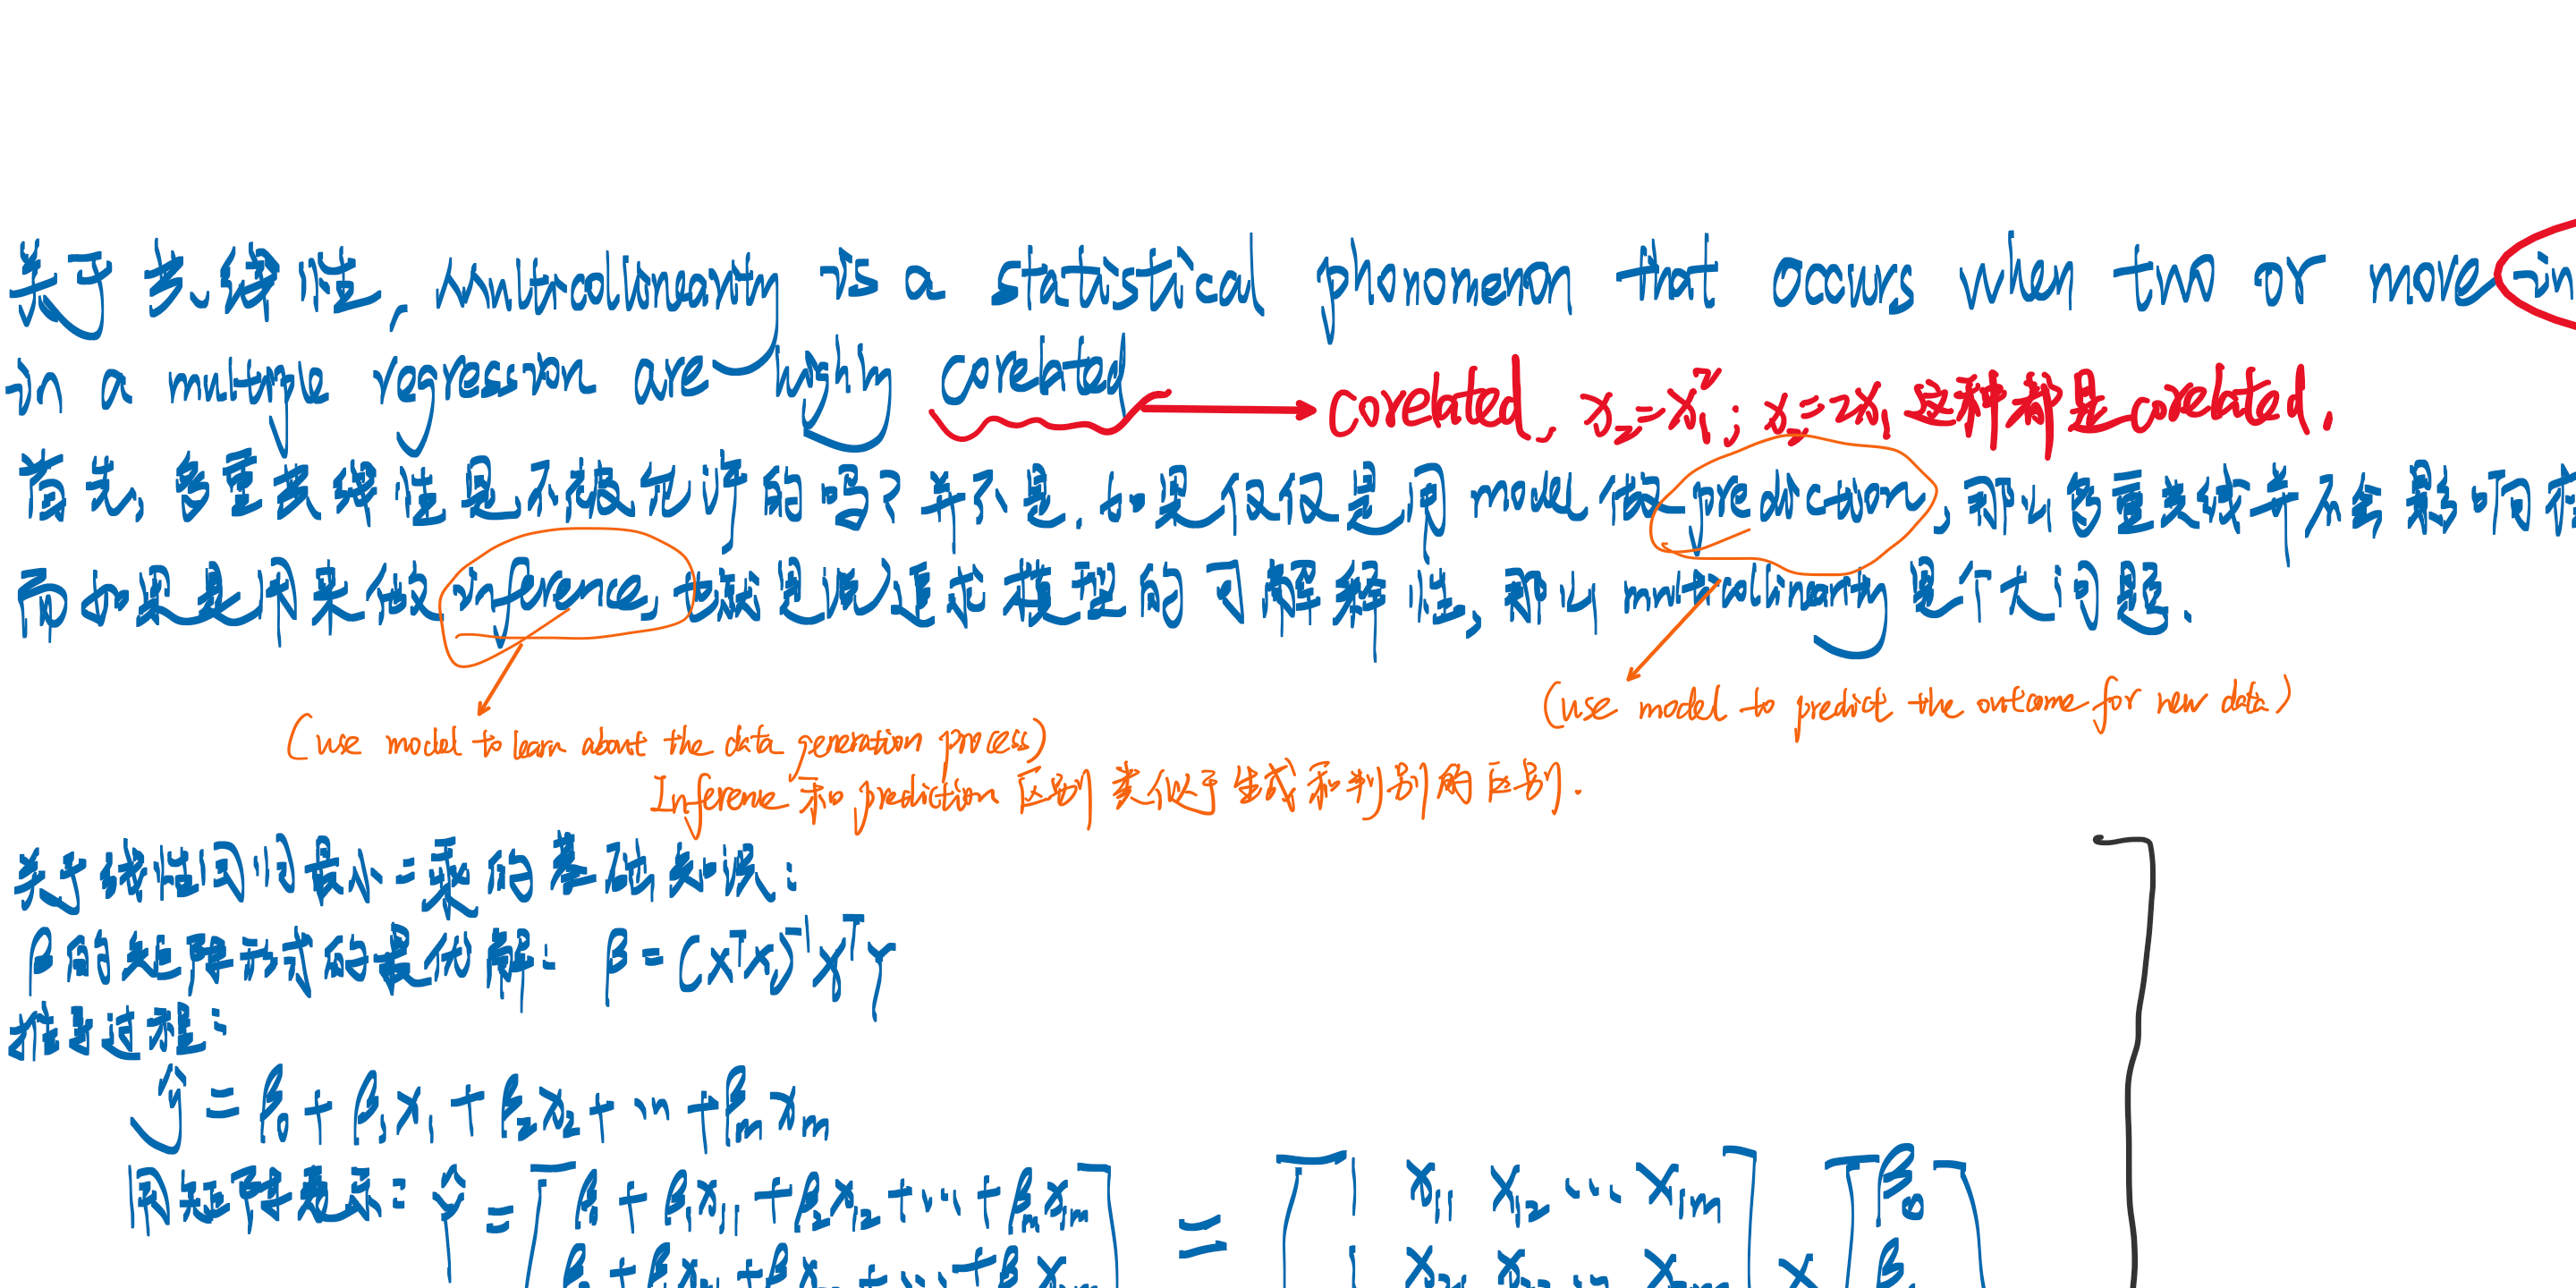 关于共线性, Multicollinearity is a statistical phonomenon that occurs when two or more in
in a multiple regression are highly corelated
corelated, x₂=x₁²; x₂=2x₁ 这种都是corelated.
首先, 多重共线性是不被允许的吗? 并不是. 如果仅仅是用 model 做 prediction, 那么多重共线并不会影响
而如果是用来做 inference, 也就是说追求模型的可解释性, 那么 multicollinearity 是个大问题.
(use model to predict the outcome for new data)
(use model to learn about the data generation process)
Inference 和 prediction 区别 类似于生成和判别的区别.
关于线性回归最小二乘的基础知识:
β的矩阵形式的最优解: β=(XᵀX)⁻¹XᵀY
推导过程:
ŷ = β₀ + β₁x₁ + β₂x₂ + ... + βₘxₘ
用矩阵表示: Ŷ = [β₀ + β₁x₁₁ + β₂x₁₂ + ... + βₘx₁ₘ] = [1 x₁₁ x₁₂ ... x₁ₘ] × [β₀]